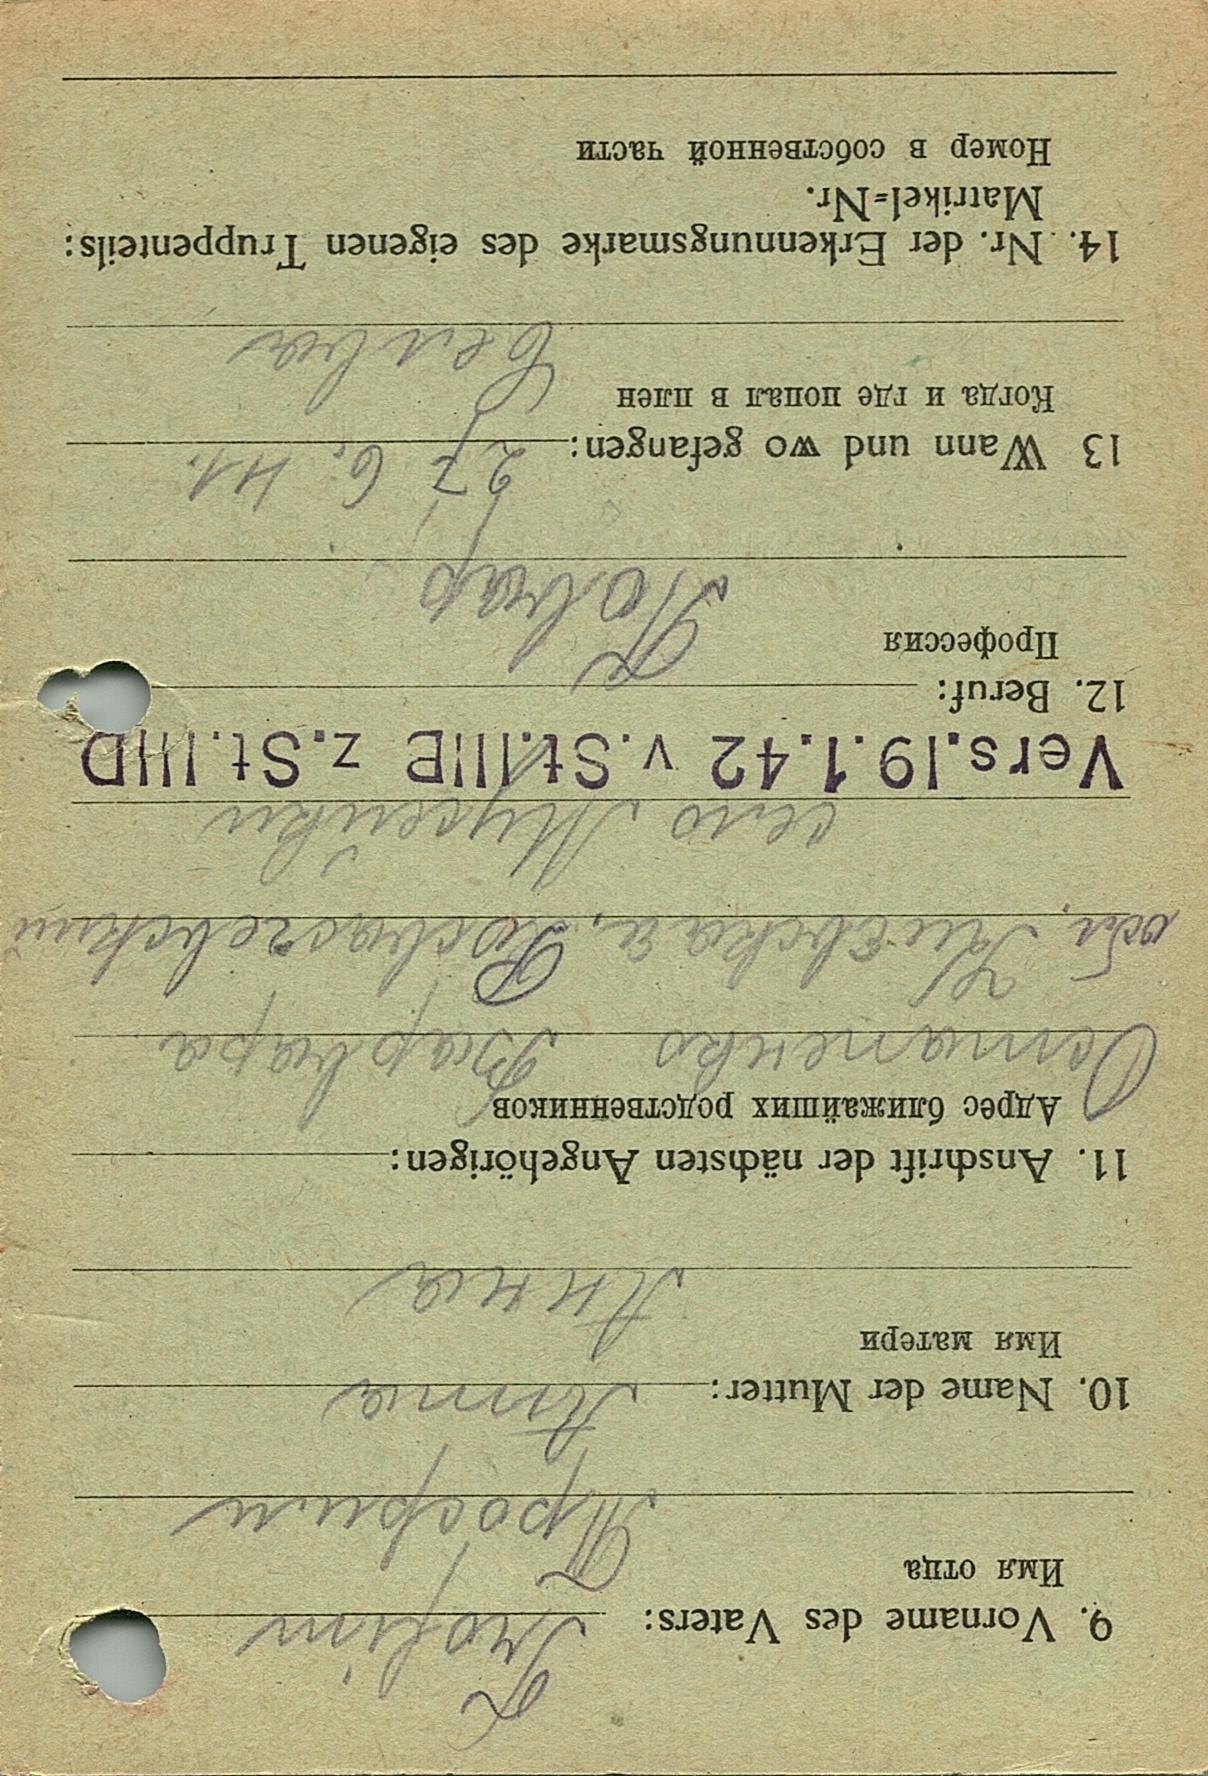 9. Vorname des Vaters: Trofim
Имя отца
Трофим
10. Name der Mutter: Anna
Имя матери
Анна
11. Anschrift der nächsten Angehörigen:
Адрес ближайших родственников
Остапенко Варвара
обл. Киевская,
село Мусейки
Vers.19.1.42 v.St.IIIE z.St.IIID
12. Beruf:
Профессия
Повар
13 Wann und wo gefangen: 27 6. 41.
Когда и где попал в плен
14. Nr. der Erkennungsmarke des eigenen Truppenteils:
Matrikel=Nr.
Номер в собственной части